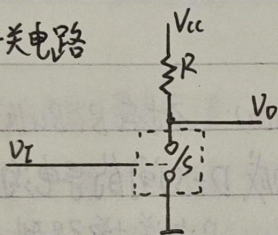 关电路
Vcc
R
Vo
VI
S